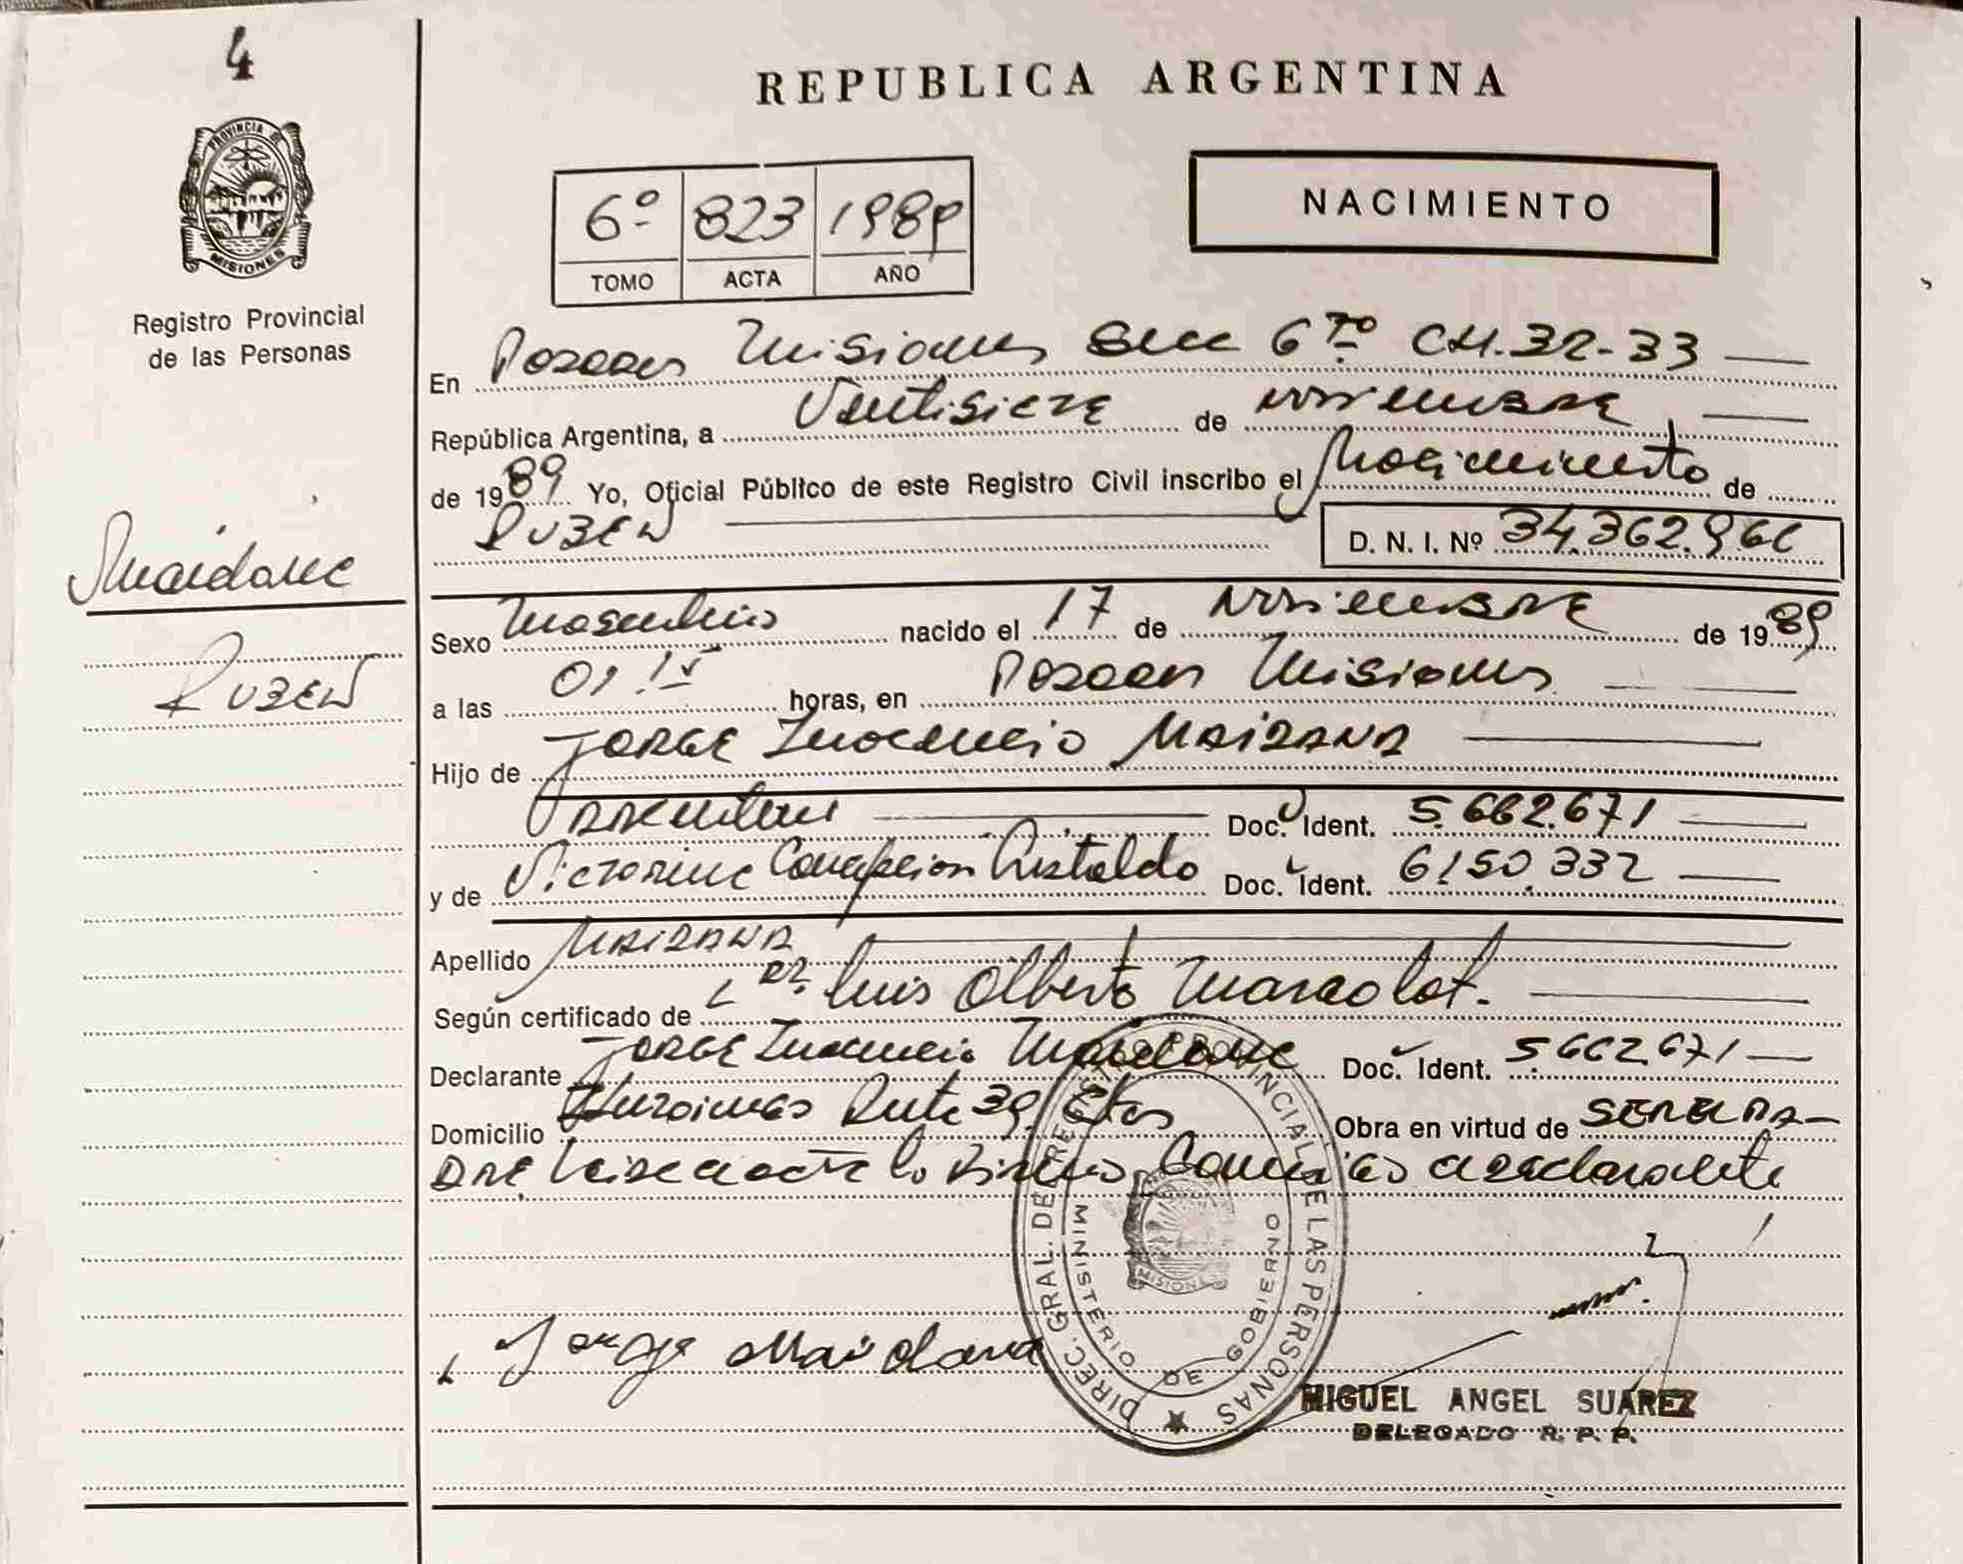 4
REPUBLICA ARGENTINA
PROVINCIA DE
MISIONES
Registro Provincial
de las Personas
6º 823 1989
TOMO ACTA AÑO
NACIMIENTO
En Posadas Misiones Secc 6ta CH.32-33
República Argentina, a Veintisiete de noviembre
de 1989 Yo, Oficial Público de este Registro Civil inscribo el Nacimiento de
RUBEN D. N. I. Nº 34.362.966
Maidana
RUBEN
Sexo Masculino nacido el 17 de noviembre de 1989
a las 01.15 horas, en Posadas Misiones
Hijo de JORGE Inocencio MAIDANA
Argentino Doc. Ident. 5.662.671
y de Victorina Concepcion Cristaldo Doc. Ident. 6150.332
Apellido MAIDANA
Según certificado de Dr. Luis Alberto
Declarante JORGE Inocencio Maidana Doc. Ident. 5662.671
Domicilio Ruta 39 Obra en virtud de SER EL PA-
DRE Leida el acta lo firma, conmigo el declarante
Jorge Maidana
DIREC. GRAL. DE REGISTRO PROVINCIAL DE LAS PERSONAS
MINISTERIO DE GOBIERNO
MISIONES
MIGUEL ANGEL SUAREZ
DELEGADO R. P. P.